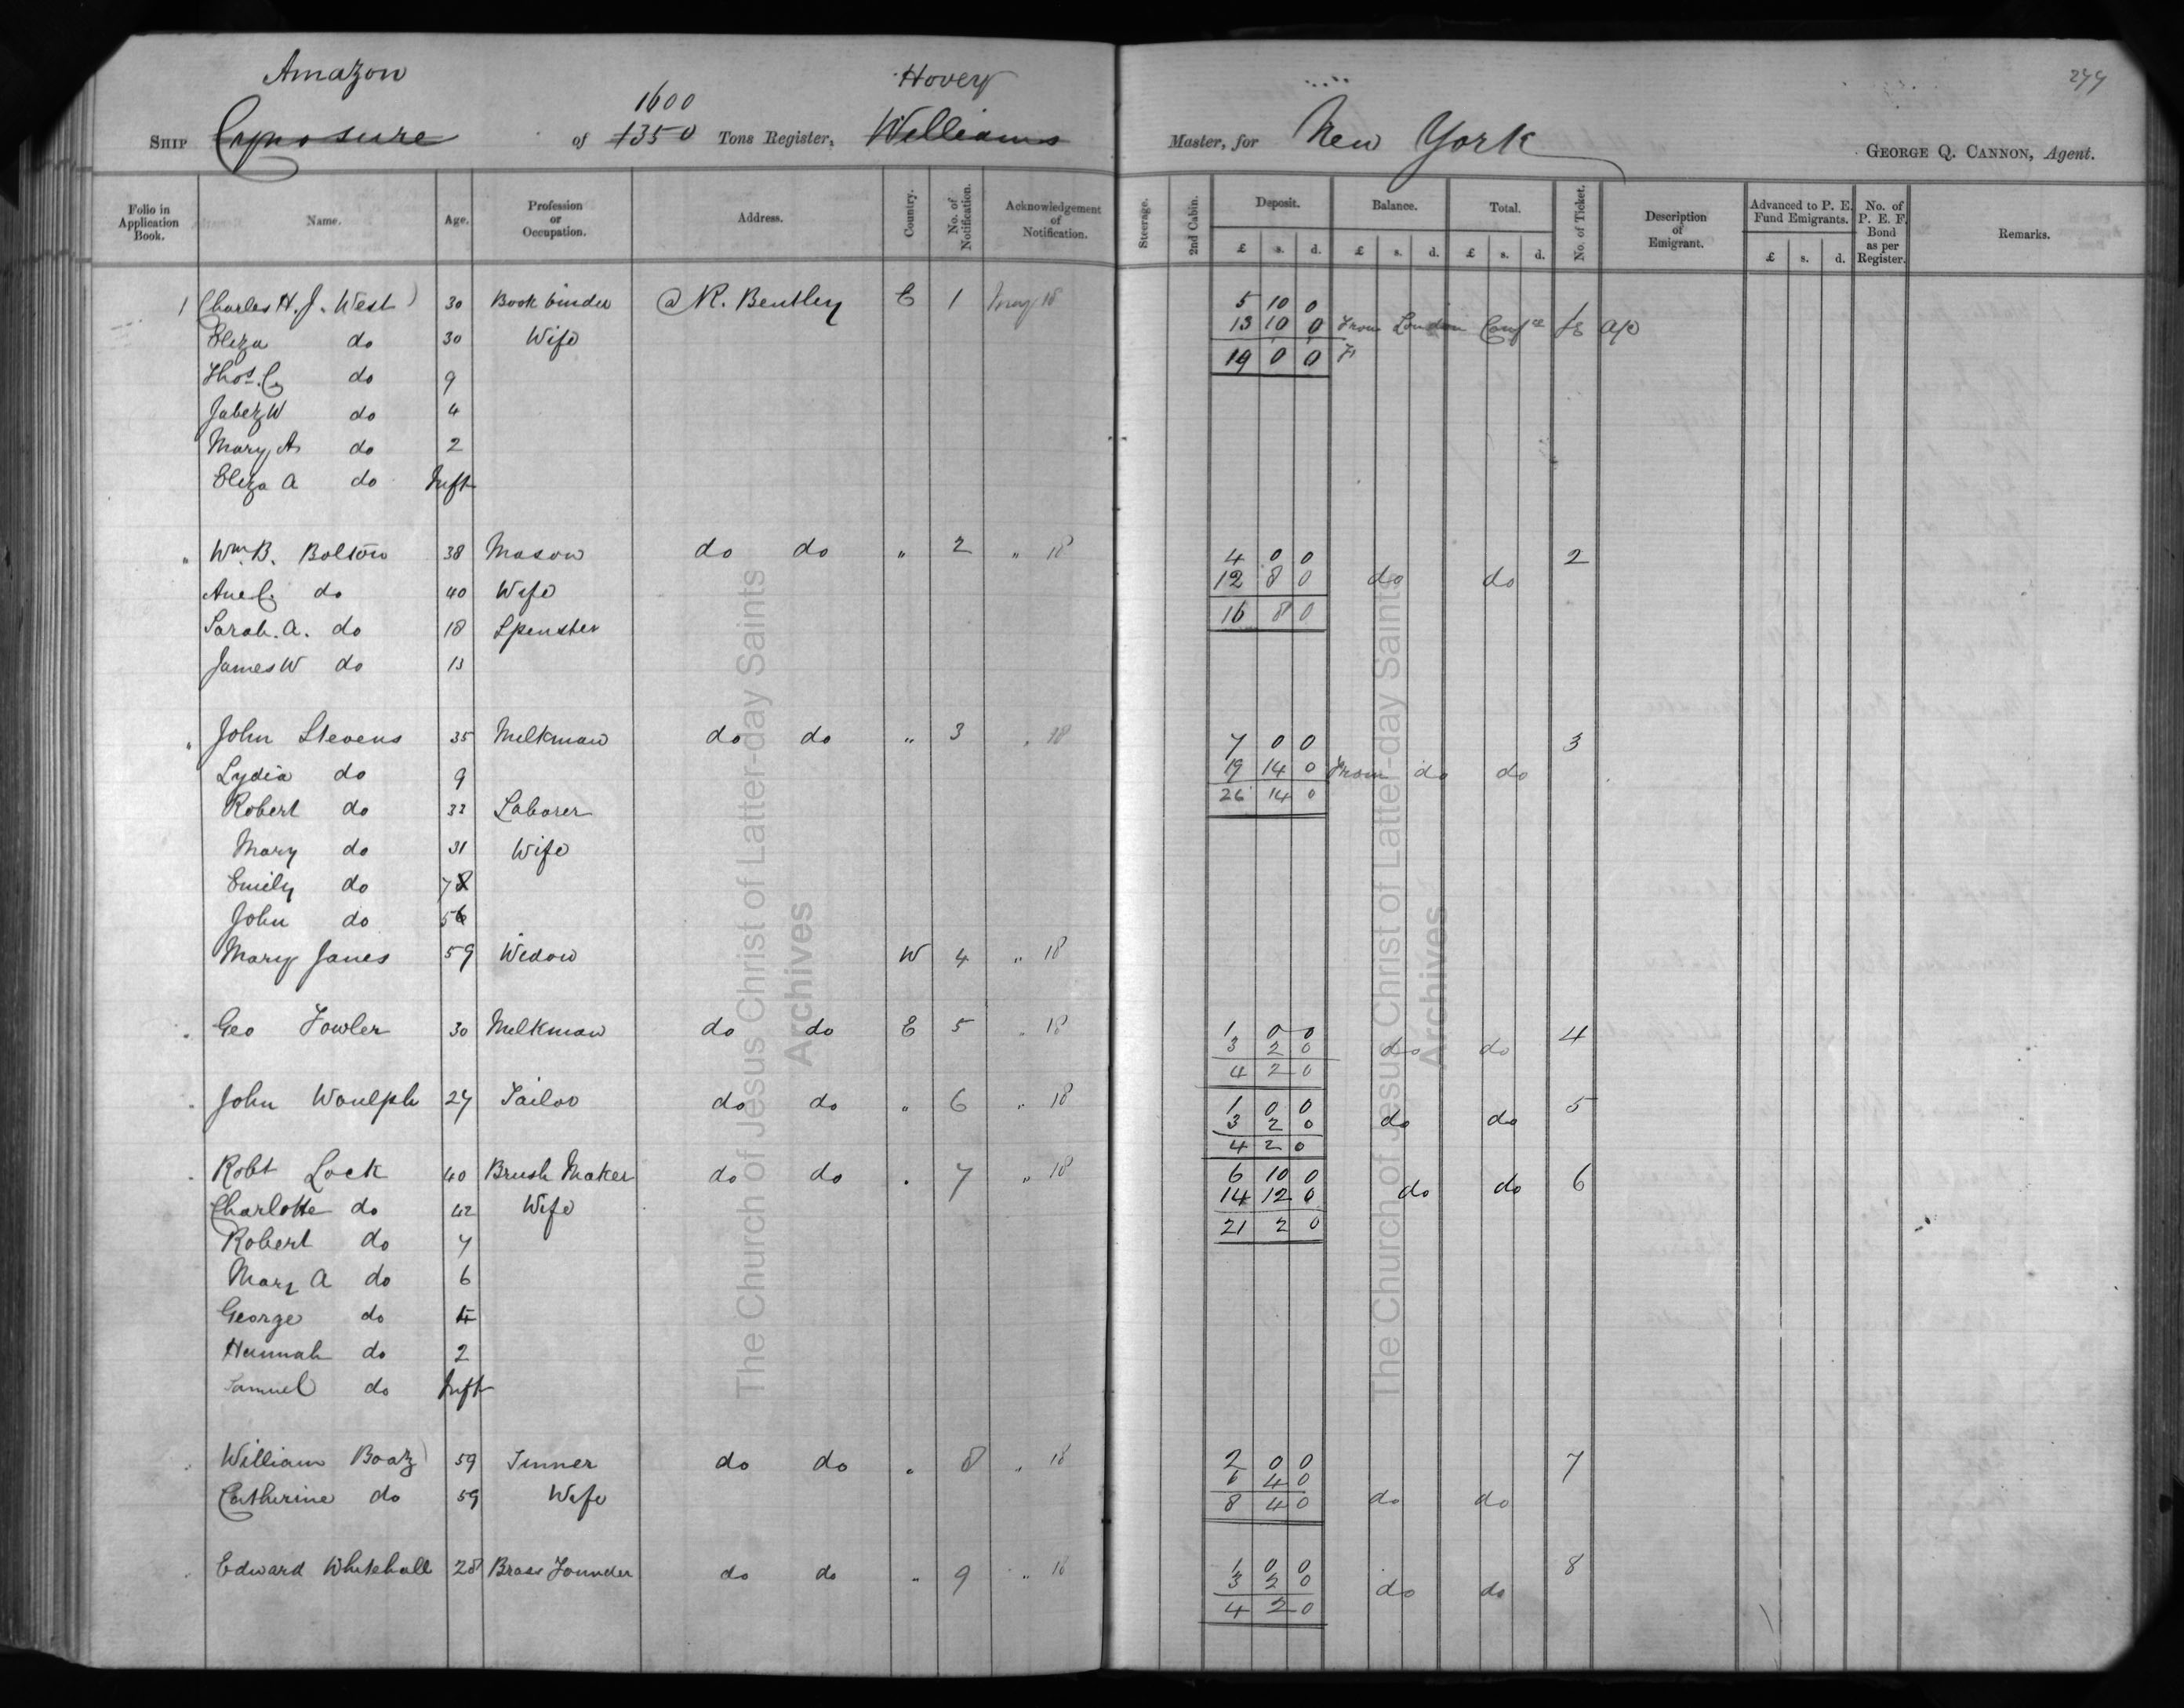 Amazon 1600 Hovery 279
SHIP Cynosure of 1350 Tons Register, Williams Master, for New York GEORGE Q. CANNON, Agent.
Folio in Application Book. Name. Age. Profession or Occupation. Address. Country. No. of Notification. Acknowledgement of Notification. Steerage. 2nd Cabin. Deposit. Balance. Total. No. of Ticket. Description of Emigrant. Advanced to P. E. Fund Emigrants. No. of P. E. F. Bond as per Register. Remarks.
£ s. d. £ s. d. £ s. d. £ s. d.
1 Charles H. J. West 30 Book binder @ R. Bentley E 1 May 18 5 10 0
Eliza do 30 Wife 13 10 0 From London Conf ce a/c
Thos. C. do 9 19 0 0
Jabez W do 4
Mary A do 2
Eliza A do Inft
" Wm. B. Bolton 38 Mason do do " 2 " 18 4 0 0 2
Ane C. do 40 Wife 12 8 0 do do
Sarah. A. do 18 Spenster 16 8 0
James W do 13
" John Stevens 35 Melkman do do " 3 " 18 7 0 0 3
Lydia do 9 19 14 0 From do do
Robert do 33 Laborer 26 14 0
Mary do 31 Wife
Emily do 7 8
John do 5 6
Mary Janes 59 Wedow W 4 " 18
" Geo Fowler 30 Melkman do do E 5 " 18 1 0 0 4
3 2 0 do do
4 2 0
" John Woulph 27 Tailor do do " 6 " 18 1 0 0 5
3 2 0 do do
4 2 0
" Robt Lock 40 Brush Maker do do " 7 " 18 6 10 0 6
Charlotte do 42 Wife 14 12 0 do do
Robert do 7 21 2 0
Mary A do 6
George do 4
Hannah do 2
Samuel do Inft
" William Boaz 59 Tinner do do " 8 " 18 2 0 0 7
Catherine do 59 Wife 6 4 0 do do
8 4 0
" Edward Whitehall 28 Brass Founder do do " 9 " 18 1 0 0 8
3 2 0 do do
4 2 0
The Church of Jesus Christ of Latter-day Saints
Archives
The Church of Jesus Christ of Latter-day Saints
Archives